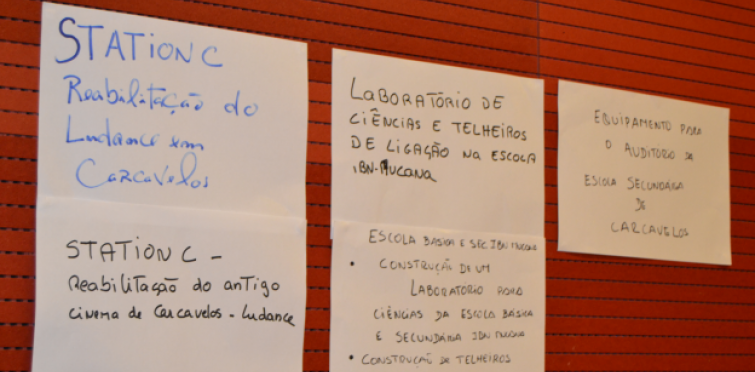 STATION C
Reabilitação do
Ludance em
Carcavelos
STATION C -
Reabilitação do antigo
cinema de Carcavelos - Ludance
LABORATÓRIO DE
CIÊNCIAS E TELHEIROS
DE LIGAÇÃO NA ESCOLA
IBN-MUCANA
ESCOLA BASICA E SEC IBN MUCANA
• CONSTRUÇÃO DE UM
LABORATORIO PARA
CIÊNCIAS DA ESCOLA BÁSICA
E SECUNDÁRIA IBN MUCANA
• CONSTRUÇÃO DE TELHEIROS
EQUIPAMENTO PARA
O AUDITÓRIO DA
ESCOLA SECUNDÁRIA
DE
CARCAVELOS